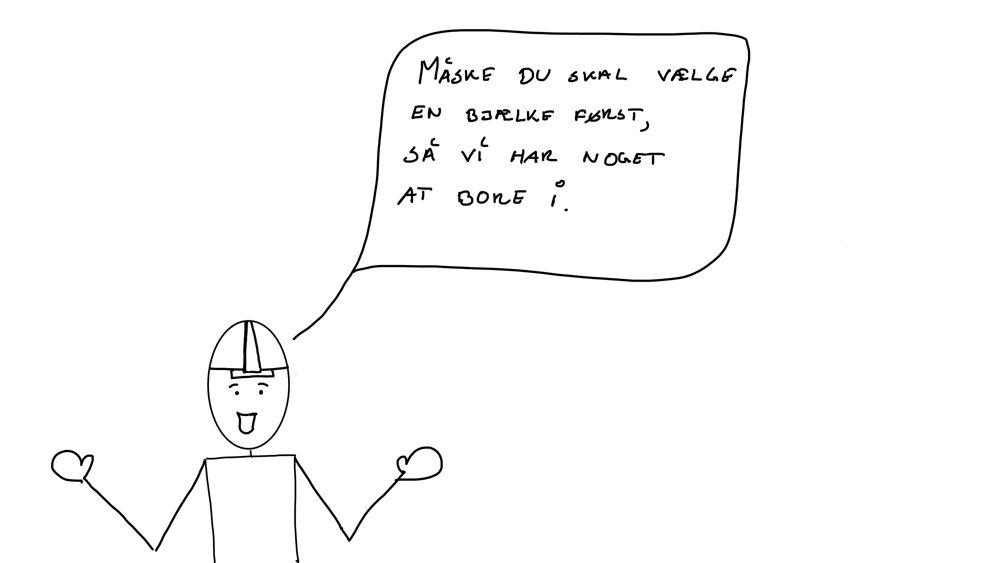 MÅSKE DU SKAL VÆLGE
EN BJÆLKE FØRST,
SÅ VI HAR NOGET
AT BORE I.